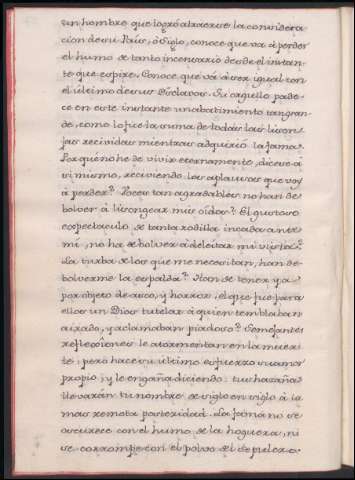 un hombre que logró atraerse la considera
cion de su Pais, ò Siglo, conoce que va à perder
el humo de tanto incensario desde el instan-
te que espire. Conoce que vá à ser igual con
el ultimo de sus Esclavos. Su orgullo pade-
ce en este instante un abatimiento tan gran-
de, como lo fue la suma de todas las lison-
jas recividas mientras adquirió la fama.
Por que no he de vivir eternamente, dice se à
si mismo, reciviendo los aplausos que voy
à perder? Voces tan agradables no han de
bolver à lisongear mis oidos? El gustoso
espectaculo de tanta rodilla incada ante
mi, no ha de bolver à deleitar mi vista?
La turba de los que me necesitan, han de
bolverme la espalda? Han de tener ya
por objeto de asco, y horror, el que fue para
ellos un Dios tutelar à quien temblaban
airado, y aclamaban piadoso? Semejantes
reflecsiones le atormentan en la muer-
te; pero hace su ultimo esfuerzo su amor
propio, y le engaña diciendo: tus hazañas
llevarán tu nombre de siglo en siglo à la
mas remota posteridad. La fama no se
oscurece con el humo de la hoguera, ni
se corrompe con el polvo del sepulcro.